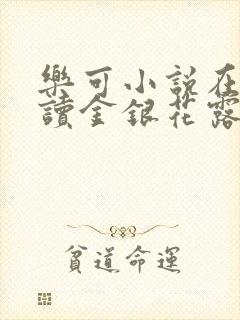 樂可小説在
讀金銀花露
貧道命運